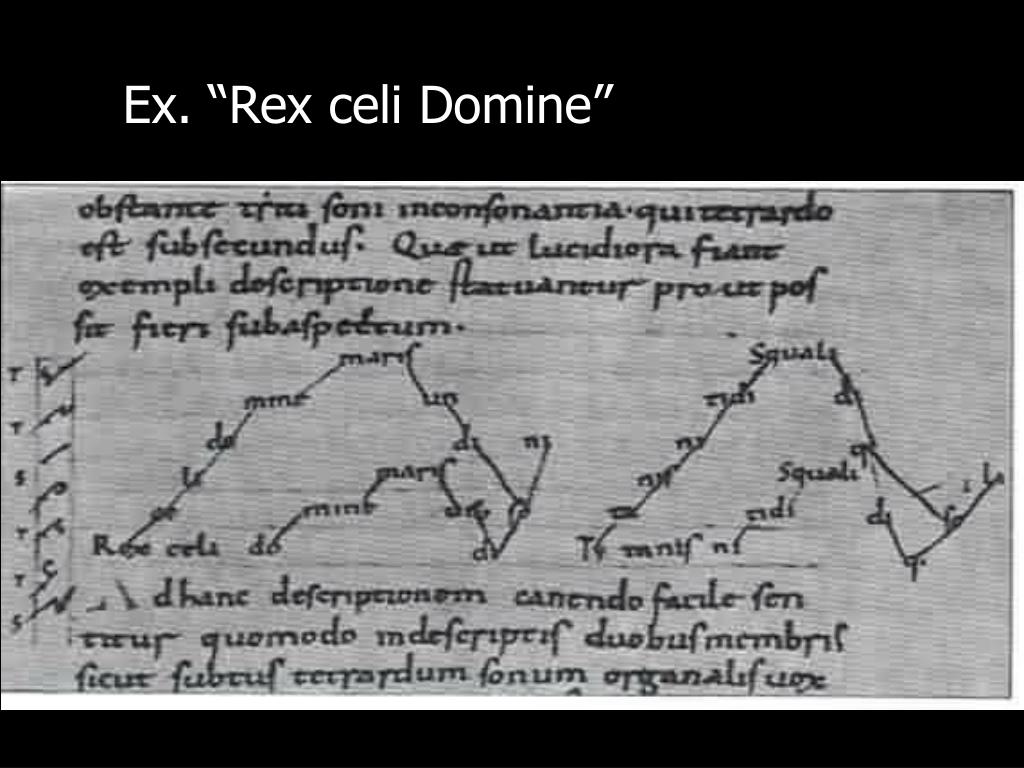 Ex. “Rex celi Domine”
obstante soni inconsonantia. qui tetrardo
est subsecundus. Quae ut lucidiora fiant
exempli descriptione statuantur pro ut pos
sit fieri sub aspectum.
T S maris Squali
T mine un tidi di
do di ni ni
S li maris ni Squali
T mine ti di so
Rex celi do di Te manis ni q.
T
S
d hanc descriptionem canendo facile sen
titur quomodo in descriptis duobus membris
sicut subtus tetrardum sonum organalis vox